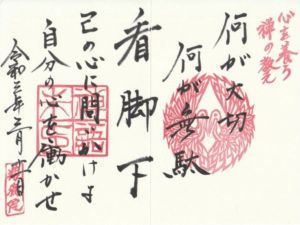 心を養う
禅の教え
何が大切
何が無駄
看脚下
己の心に問いかけよ
自分の心を働かせ
令和三年二月十一日